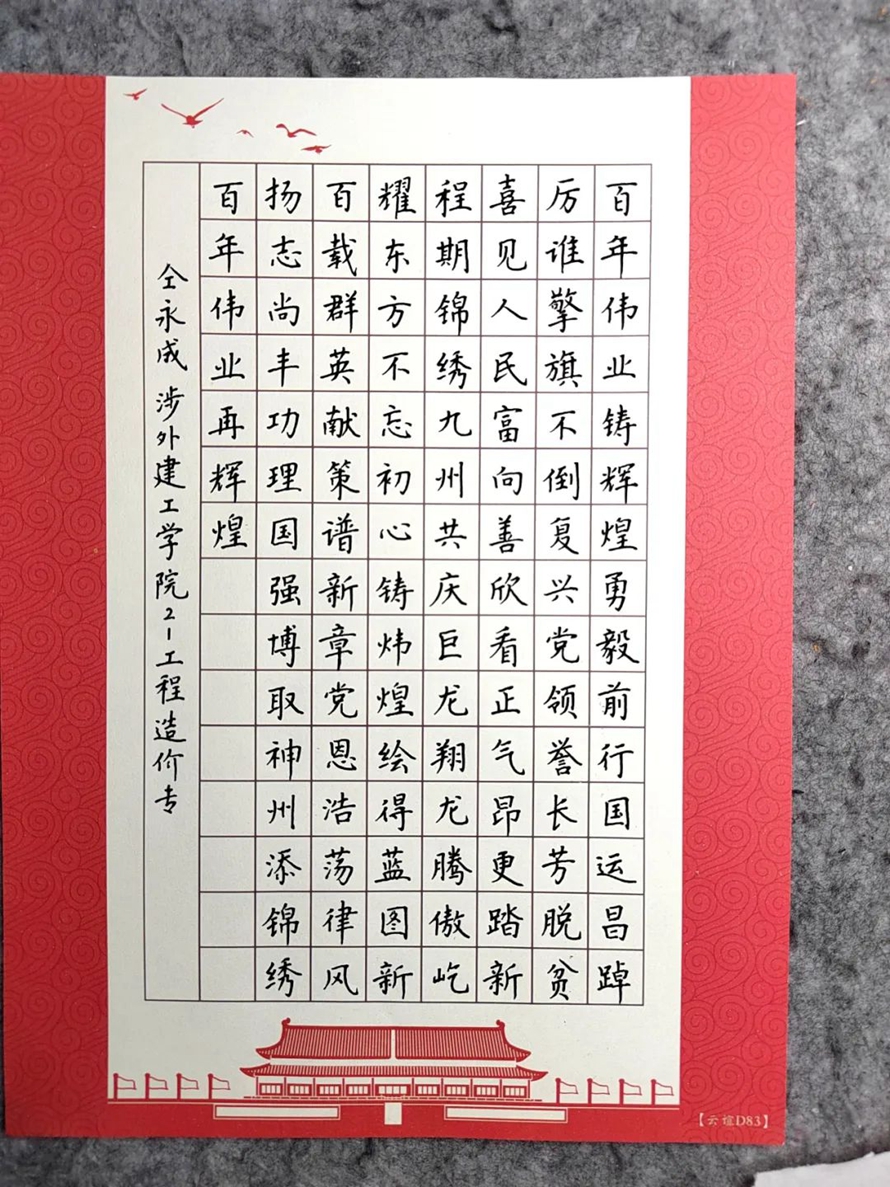 百年伟业铸辉煌勇毅前行国运昌踔
厉谁擎旗不倒复兴党领誉长芳脱贫
喜见人民富向善欣看正气昂更踏新
程期锦绣九州共庆巨龙翔龙腾傲屹
耀东方不忘初心铸炜煌绘得蓝图新
百载群英献策谱新章党恩浩荡律风
扬志尚丰功理国强博取神州添锦绣
百年伟业再辉煌
仝永成 涉外建工学院21工程造价专
【云谊D83】